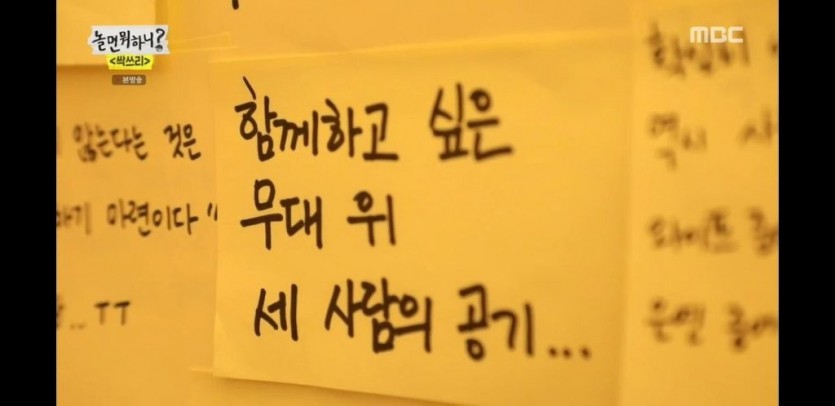 놀면 뭐하니?
<싹쓰리>
본방송
MBC
않는다는 것은
하기 마련이다"
..ㅠㅠ
함께하고 싶은
무대 위
세 사람의 공기...
역시